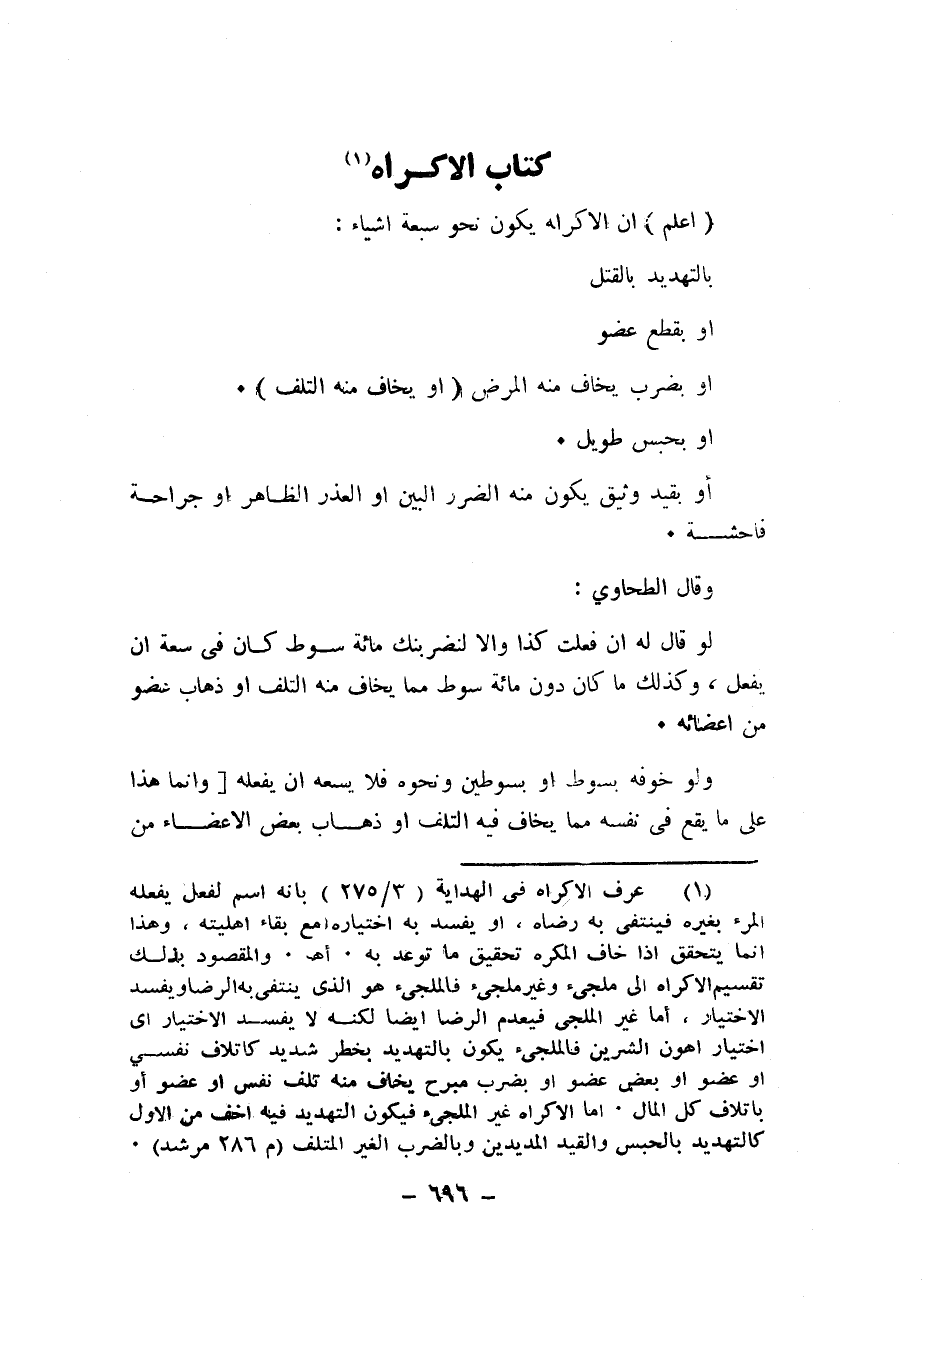 كتاب الاكـــراه(١)
( اعلم ) ان الاكراه يكون نحو سبعة اشياء :
بالتهديد بالقتل
او بقطع عضو
او بضرب يخاف منه المرض ( او يخاف منه التلف ) ٠
او بحبس طويل ٠
أو بقيد وثيق يكون منه الضرر البين او العذر الظـاهر او جراحـة
فاحشـــة ٠
وقال الطحاوي :
لو قال له ان فعلت كذا والا لنضربنك مائة ســوط كــان فى سعة ان
يفعل ، وكذلك ما كان دون مائة سوط مما يخاف منه التلف او ذهاب عضو
من اعضائه ٠
ولو خوفه بسوط او بسوطين ونحوه فلا يسعه ان يفعله [ وانما هذا
على ما يقع فى نفسه مما يخاف فيه التلف او ذهـــاب بعض الاعضـــاء من
(١) عرف الاكراه فى الهداية ( ٢٧٥/٣ ) بانه اسم لفعل يفعله
المرء بغيره فينتفى به رضاه ، او يفسد به اختياره مع بقاء اهليته ، وهذا
انما يتحقق اذا خاف المكره تحقيق ما توعد به ٠ أهـ ٠ والمقصود بذلــك
تقسيم الاكراه الى ملجىء وغير ملجىء فالملجىء هو الذى ينتفى به الرضا ويفسد
الاختيار ، أما غير الملجى فيعدم الرضا ايضا لكنــه لا يفســد الاختيار اى
اختيار اهون الشرين فالملجىء يكون بالتهديد بخطر شديد كاتلاف نفســي
او عضو او بعض عضو او بضرب مبرح يخاف منه تلف نفس او عضو أو
باتلاف كل المال ٠ اما الاكراه غير الملجىء فيكون التهديد فيه اخف من الاول
كالتهديد بالحبس والقيد المديدين وبالضرب الغير المتلف (م ٢٨٦ مرشد) ٠
- ٦٩٦ -